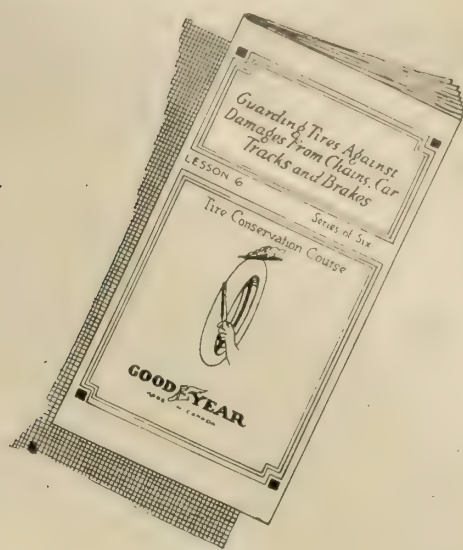 Guarding Tires Against
Damages From Chains, Car
Tracks and Brakes
LESSON 6
Series of Six
Tire Conservation Course
GOOD YEAR
MADE IN CANADA